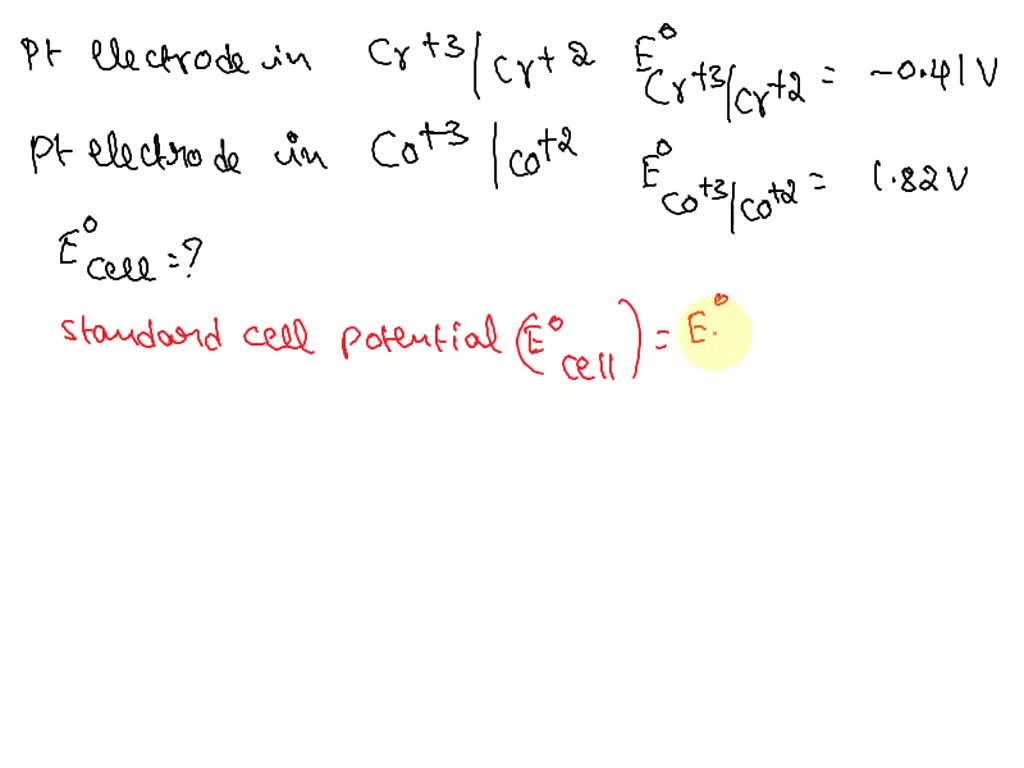 Pt electrode in Cr+3/Cr+2 E°Cr+3/Cr+2 = -0.41V
Pt electrode in Co+3/Co+2 E°Co+3/Co+2 = 1.82V
E°cell=?
standard cell potential (E°cell) = E°